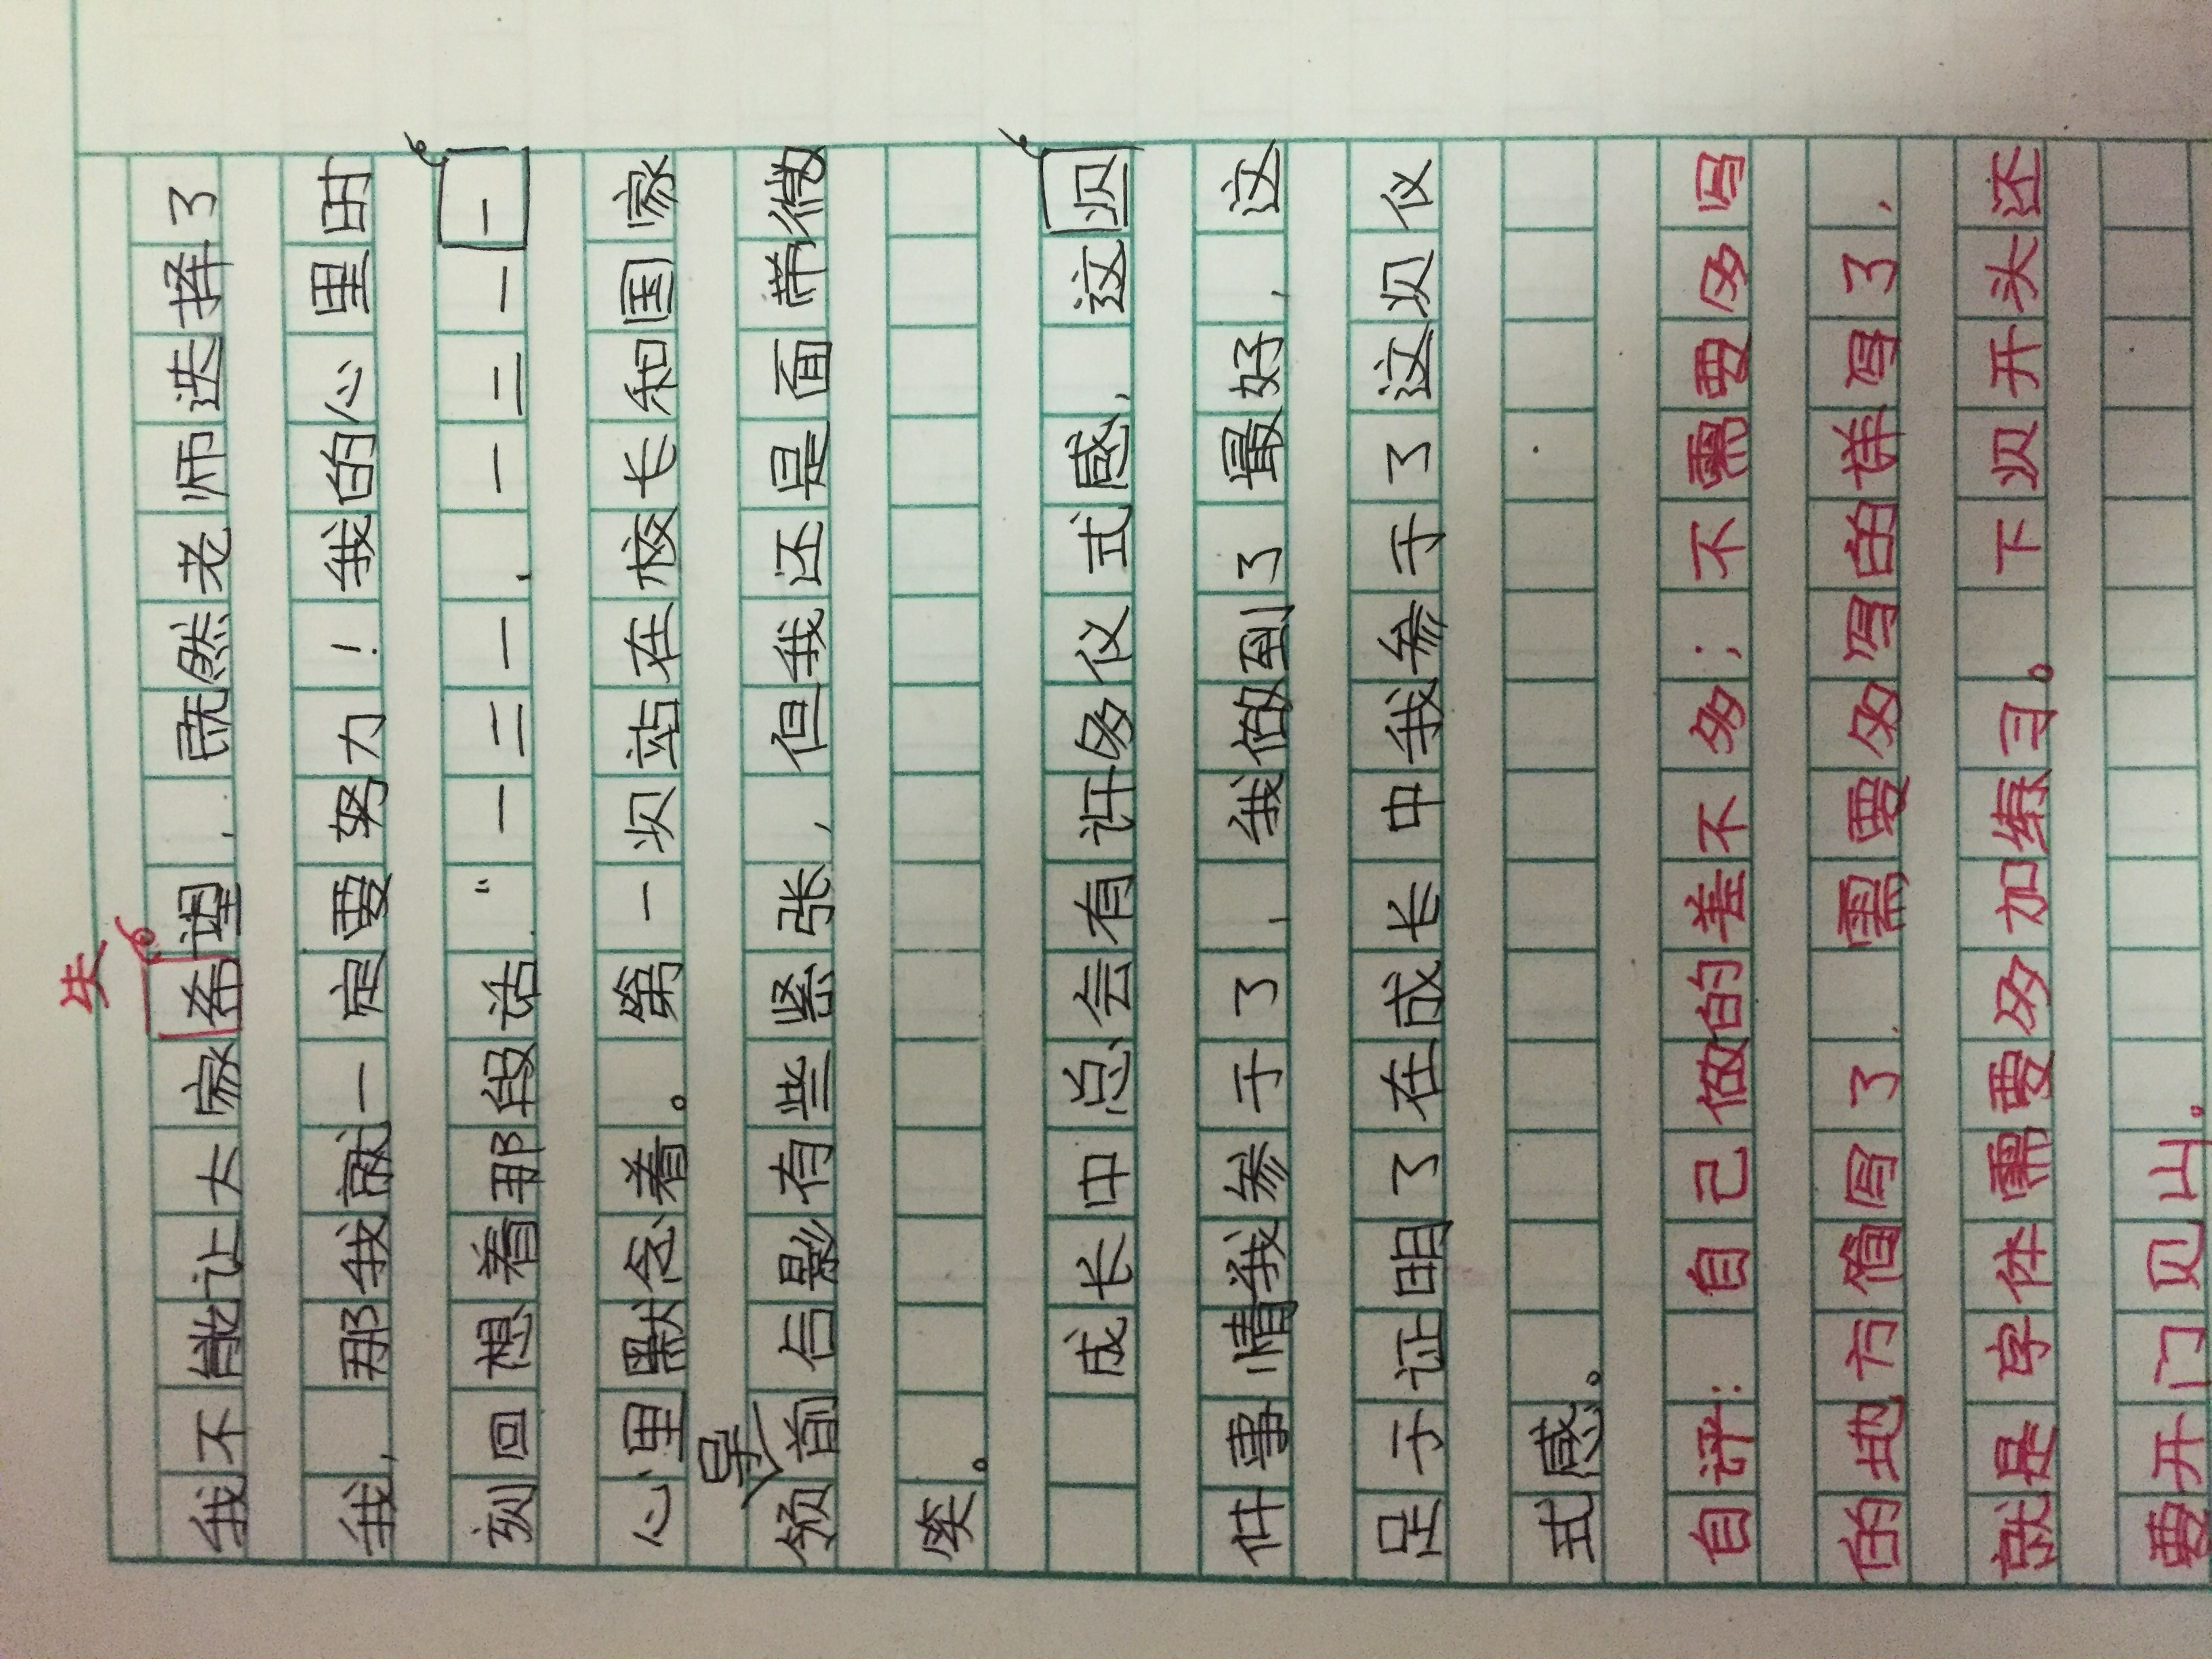 失
我不能让大家希望，既然老师选择了
我，那我就一定要努力！我的心里时
刻回想着那段话“一二一，一二一一
心里默念着。第一次站在校长和国家
导
领前信影有些紧张，但我还是面带微
笑。
成长中总会有许多仪式感，这次
件事情我参于了，我做到了最好，这
足于证明了在成长中我参于了这次仪
式感。
自评：自己做的差不多；不需要多写
的地方简写了 需要多写的样写了，
就是字体需要多加练习。下次开头还
要开门见山。